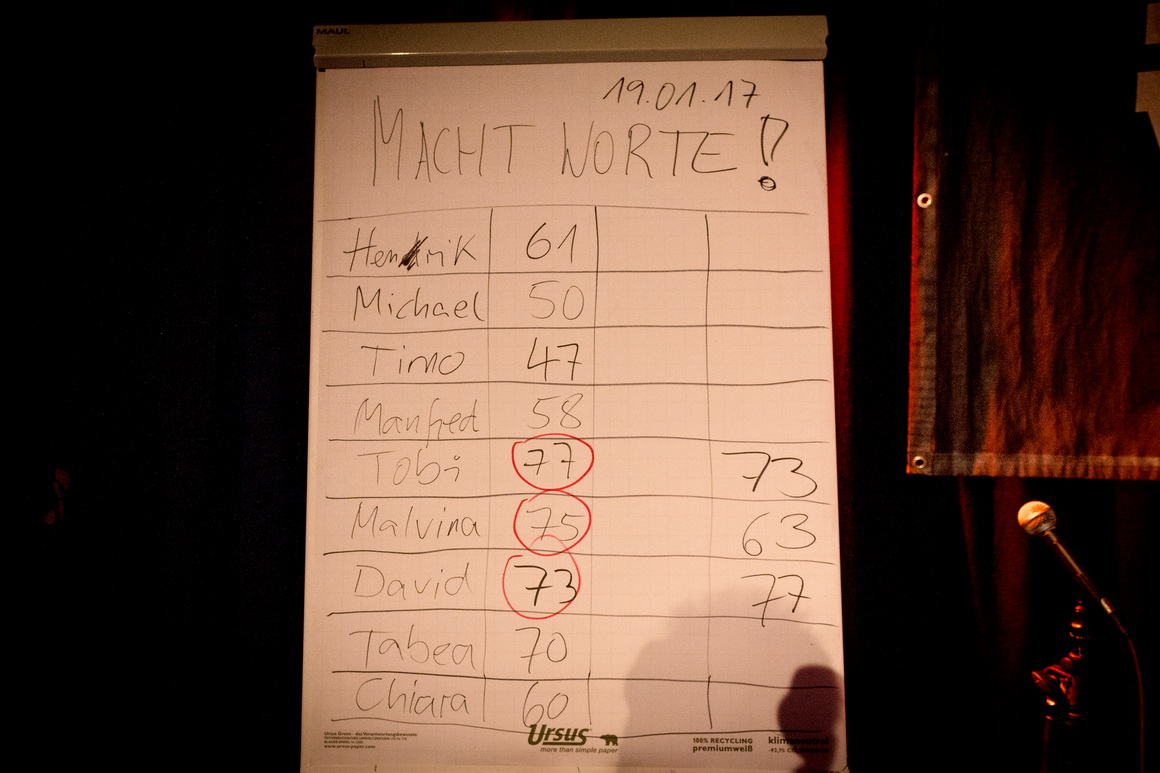 MAUL
19.01.17
MACHT WORTE!
Hendrik 61
Michael 50
Timo 47
Manfred 58
Tobi 77 73
Malvina 75 63
David 73 77
Tabea 70
Chiara 60
Ursus Green - das Verantwortungsbewusste
www.ursus-paper.com
Ursus
more than simple paper
100% RECYCLING
premiumweiß
klimaneutral